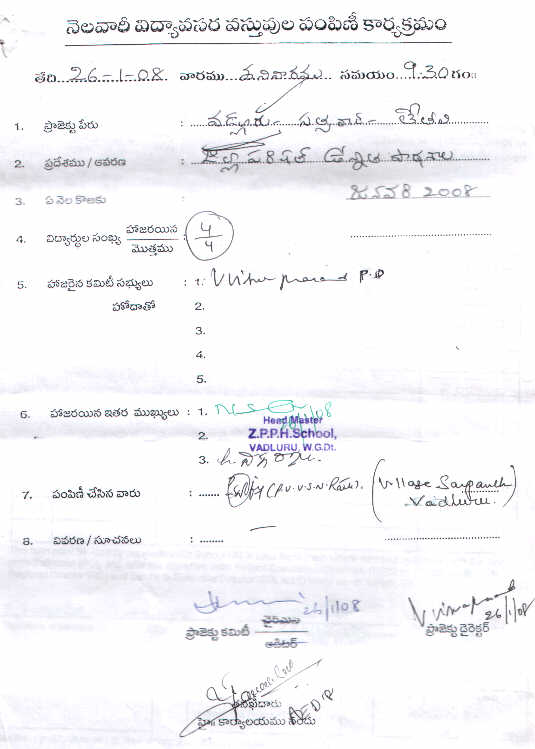 నెలవారీ విద్యావసర వస్తువుల పంపిణీ కార్యక్రమం
తేది 26-1-08 వారము శనివారము సమయం 9.30 గం॥
1. ప్రాజెక్టు పేరు : వడ్లూరు -
2. ప్రదేశము / ఆవరణ : జిల్లా పరిషత్ ఉన్నత పాఠశాల
3. ఏ నెల కొఱకు జనవరి 2008
4. విద్యార్థుల సంఖ్య హాజరయిన / మొత్తము : 4/4
5. హాజరైన కమిటీ సభ్యులు : 1. P.D
హోదాతో 2.
3.
4.
5.
6. హాజరయిన ఇతర ముఖ్యులు : 1.
Head Master
2. Z.P.P.H.School,
VADLURU, W.G.Dt.
3.
7. పంపిణీ చేసిన వారు : (P.V.V.S.N. Raju). (Village Sarpanch
Vadluru.)
8. వివరణ / సూచనలు :
26/1/08
ప్రాజెక్టు కమిటీ చైర్మన్
ఆడిటర్
26/1/08
ప్రాజెక్టు డైరెక్టర్
తనిఖీదారు
హె॥ కార్యాలయము నందు